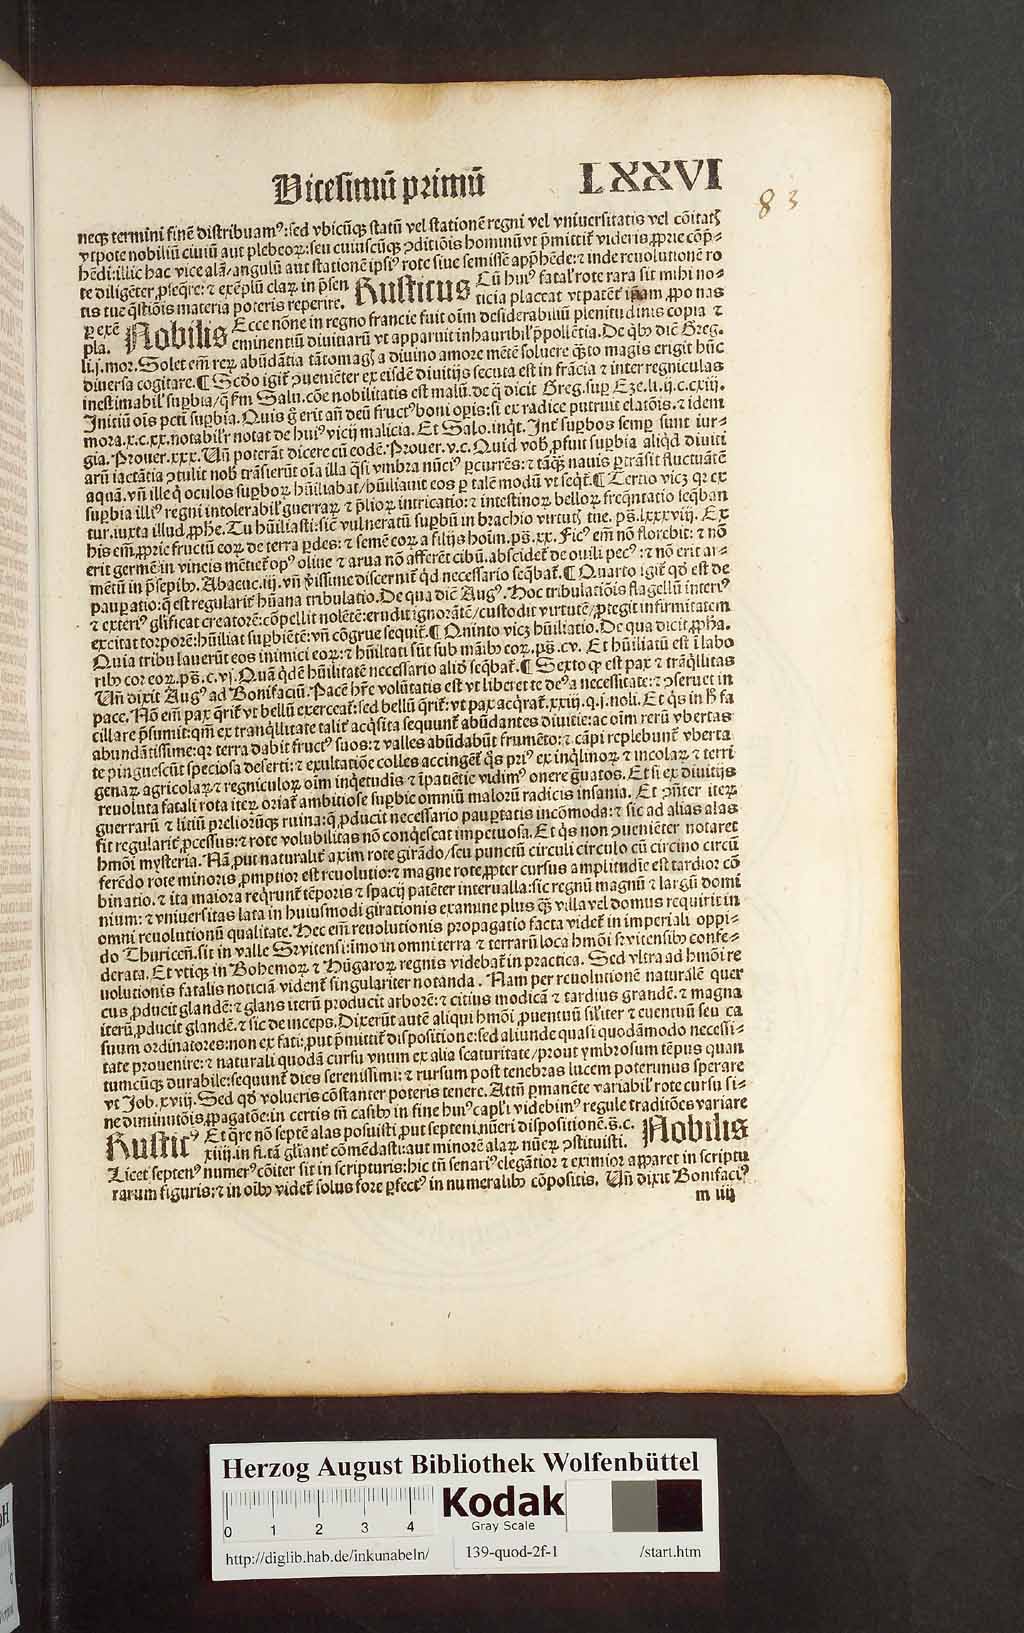 Vicesimũ primũ LXXVI
83
neqꝫ termini finẽ distribuamꝰ: sed vbicũqꝫ statũ vel stationẽ regni vel vniuersitatis vel cõitatꝭ
vtpote nobiliũ ciuiũ aut plebeoꝝ: seu cuiuscũqꝫ ↄditiõis hominũ vt p̃mittit᷑ videris ꝓprie cõp̃-
hẽdi: illic hac vice alã/ angulũ aut stationẽ ipsiꝰ rote siue semissẽ app̃hẽde: ⁊ inde reuolutionẽ ro
te diligẽter ꝓseq̃re: ⁊ exẽplũ claꝝ in p̃sen
tis tue q̃stiõis materia poteris reperire.
Rusticus Cũ huiꝰ fatal᷑ rote rara sit mihi no-
ticia placeat vt patẽt᷑ ip̃am ꝓpo nas
ꝑ exẽ
pla.
Nobilis Ecce nõne in regno francie fuit oĩm desiderabiliũ plenitudinis copia ⁊
eminentiũ diuitiarũ vt apparuit inhauribil᷑ p̃pollẽtia. De qͥbꝫ dic̃ Greg.
li.j.mor. Solet em̃ reꝝ abũdãtia tãtomagꝭ a diuino amore mẽtẽ soluere qͣ̃to magis erigit hũc
diuersa cogitare. ¶ Scd̃o igit᷑ ↄueniẽter ex eisdẽ diuitijs secuta est in frãcia ⁊ inter regniculas
inestimabil᷑ suꝑbia/ q̃ fm̃ Salu. cõe nobilitatis est malũ. de q̃ dicit Greg. suꝑ Eze. li.ij.c.cxiij.
Initiũ oĩs pcti suꝑbia. Quis g̊ erit añ deũ fructꝰ boni oꝑis: si ex radice putruit elatõis. ⁊ idem
mora.x.c.xx. notabilr̃ notat de huiꝰ vicij malicia. Et Salo. inqͥt. Int᷑ suꝑbos semꝑ sunt iur-
gia. Prouer.xxx. Vñ poterãt dicere cũ eodẽ. Prouer.v.c. Quid vob̃ ꝓfuit suꝑbia aliqͥd diuiti
arũ iactãtia ↄtulit nob̃ trãsierũt oĩa illa qͣsi vmbra nũciꝰ ꝑcurrẽs: ⁊ tãqͣ̃ nauis ꝑtrãsit fluctuãtẽ
aquã. vñ ille q̇ oculos suꝑboꝝ hũiliabat/ hũiliauit eos ꝑ talẽ modũ vt seqͥt᷑. ¶ Tertio vicꝫ qꝛ ex
suꝑbia illiꝰ regni intolerabil᷑ guerraꝝ ⁊ p̃lioꝝ intricatio: ⁊ intestinoꝝ belloꝝ freqͣ̃ntatio seqͣ̃ban
tur. iuxta illud ꝓphe. Tu hũiliasti: sic̃ vulneratũ suꝑbũ in brachio virtutꝭ tue. pš.lxxxviij. Ex
his em̃ ꝓprie fructũ eoꝝ de terra ꝑdes: ⁊ semẽ eoꝝ a filijs hoim̃. pš.xx. Ficꝰ em̃ nõ florebit: ⁊ nõ
erit germẽ in vineis mẽtiet᷑ opꝰ oliue ⁊ arua nõ afferẽt cibũ. abscidet᷑ de ouili pecꝰ: ⁊ nõ erit ar-
mẽtũ in p̃sepibꝫ. Abacuc.iij. vñ v̓issime discernit᷑ qd̓ necessario seqͣ̃bat᷑. ¶ Quarto igit᷑ qd̓ est de
pauꝑatio: q̃ est regularit᷑ hũana tribulatio. De qua dic̃ Augꝰ. Hoc tribulatiõis flagellũ interiꝰ
⁊ exteriꝰ glificat creatorẽ: cõpellit nolẽtẽ: erudit ignorãtẽ/ custodit virtutẽ/ ꝓtegit infirmitatem
excitat torporẽ: hũiliat suꝑbiẽtẽ: vñ cõgrue sequit᷑. ¶ Quinto vicꝫ hũiliatio. De qua dicit ꝓph̃a.
Quia tribulauerũt eos inimici eoꝝ: ⁊ hũiltati sũt sub manibꝫ eoꝝ. pš.cv. Et hũiliatũ est ĩ labo
ribꝫ cor eoꝝ. pš.c.vj. Quã qͥdẽ hũilitatẽ necessario aliqd̓ seqͣ̃bat᷑. ¶ Sexto qꝫ est pax ⁊ trãqͥllitas
Vñ dixit Augꝰ ad Bonifaciũ. Pacẽ hr̃e volũtatis est vt liberet te deꝰ a necessitate: ⁊ ↄseruet in
pace. Nõ em̃ pax q̃rit᷑ vt bellũ exerceat᷑: sed bellũ q̃rit᷑: vt pax acqͥrat᷑.xxiij.q.j. noli. Et qͥs in h̃ fa
cillare p̃sumit: qm̃ ex tranqͥllitate talit᷑ acqͥsita sequunt᷑ abũdantes diuitie: ac oĩm rerũ vbertas
abundãtissime: qꝛ terra dabit fructꝰ suos: ⁊ valles abũdabũt frumẽto: ⁊ cãpi replebunt᷑ vberta
te pinguescũt speciosa deserti: ⁊ exultatiõe colles accinget᷑ qͥs priꝰ ex inqͥlinoꝝ ⁊ incolaꝝ ⁊ terri
genaꝝ agricolaꝝ ⁊ regniculoꝝ oĩm inqͥetudĩs ⁊ ĩpatiẽtie vidimꝰ onere g̃uatos. Et si ex diuitijs
reuoluta fatali rota iteꝝ oriat᷑ ambitiose suꝑbie omniũ maloꝝ radicis insania. Et ↄñter iteꝝ
guerrarũ ⁊ litiũ preliorũqꝫ ruina: q̃ ꝓducit necessario pauꝑtatis incõmoda: ⁊ sic ad alias alas
fit regularit᷑ ꝓcessus: ⁊ rote volubilitas nõ conqͥescat impetuosa. Et qͥs non ↄueniẽter notaret
hmõi mysteria. Nã ꝓut naturalit᷑ axim rote girãdo/ seu punctũ circuli circulo cũ circino circũ
ferẽdo rote minoris ꝓmptior est reuolutio: ⁊ magne rote ꝓpter cursus amplitudinẽ est tardior cõ
binatio. ⁊ ita maiora reqͥrunt᷑ tẽporis ⁊ spacij patẽter interualla: sic regnũ magnũ ⁊ largũ domi
nium: ⁊ vniuersitas lata in huiusmodi girationis examine plus qͣ̃ villa vel domus requirit in
omni reuolutionũ qualitate. Hec em̃ reuolutionis propagatio facta videt᷑ in imperiali oppi-
do Thuriceñ. sit in valle Switensi: imo in omni terra ⁊ terrarũ loca hmõi switensibꝫ confe-
derata. Et vtiqꝫ in Bohemoꝝ ⁊ Hũgaroꝝ regnis videbat᷑ in practica. Sed vltra ad hmõi re
uolutionis fatalis noticiã vident᷑ singulariter notanda. Nam per reuolutionẽ naturalẽ quer
cus ꝓducit glandẽ: ⁊ glans iterũ producit arborẽ: ⁊ citius modicã ⁊ tardius grandẽ. ⁊ magna
iterũ ꝓducit glandẽ. ⁊ sic deinceps. Dixerũt autẽ aliqui hmõi ꝓuentuũ sil̓iter ⁊ euentuũ seu ca
suum ordinatores: non ex fati: ꝓut p̃mittit᷑ dispositione: sed aliunde quasi quodãmodo necessi-
tate prouenire: ⁊ naturali quodã cursu vnum ex alia scaturitate/ prout ymbrosum tẽpus quan
tumcũqꝫ durabile: sequunt᷑ dies serenissimi: ⁊ rursum post tenebras lucem poterimus sperare
vt Job.xviij. Sed qd̓ volueris cõstanter poteris tenere. Attñ ꝑmanẽte variabil᷑ rote cursu si-
ne diminutiõis ꝓpagatõe: in certis tñ casibꝫ in fine huiꝰ capl̓i videbimꝰ regule traditõces variare
Rusticꝰ Et q̃re nõ septẽ alas posuisti ꝓut septeni nũeri dispositionẽ.š.c.
xiiij. in fi. tã gl̓iant᷑ cõmẽdasti: aut minorẽ alaꝝ nũeꝝ ↄstituisti.
Nobilis
Licet septenꝰ numerꝰ cõiter sit in scripturis: hic tñ senariꝰ elegãtior ⁊ eximior apparet in scriptu
rarum figuris: ⁊ in oĩbꝫ videt᷑ solus fore ꝑfectꝰ in numeralibꝫ cõpositis. Vñ dixit Bonifaciꝰ
m iiij
Herzog August Bibliothek Wolfenbüttel
0 1 2 3 4
Kodak
Gray Scale
http://diglib.hab.de/inkunabeln/ 139-quod-2f-1 /start.htm